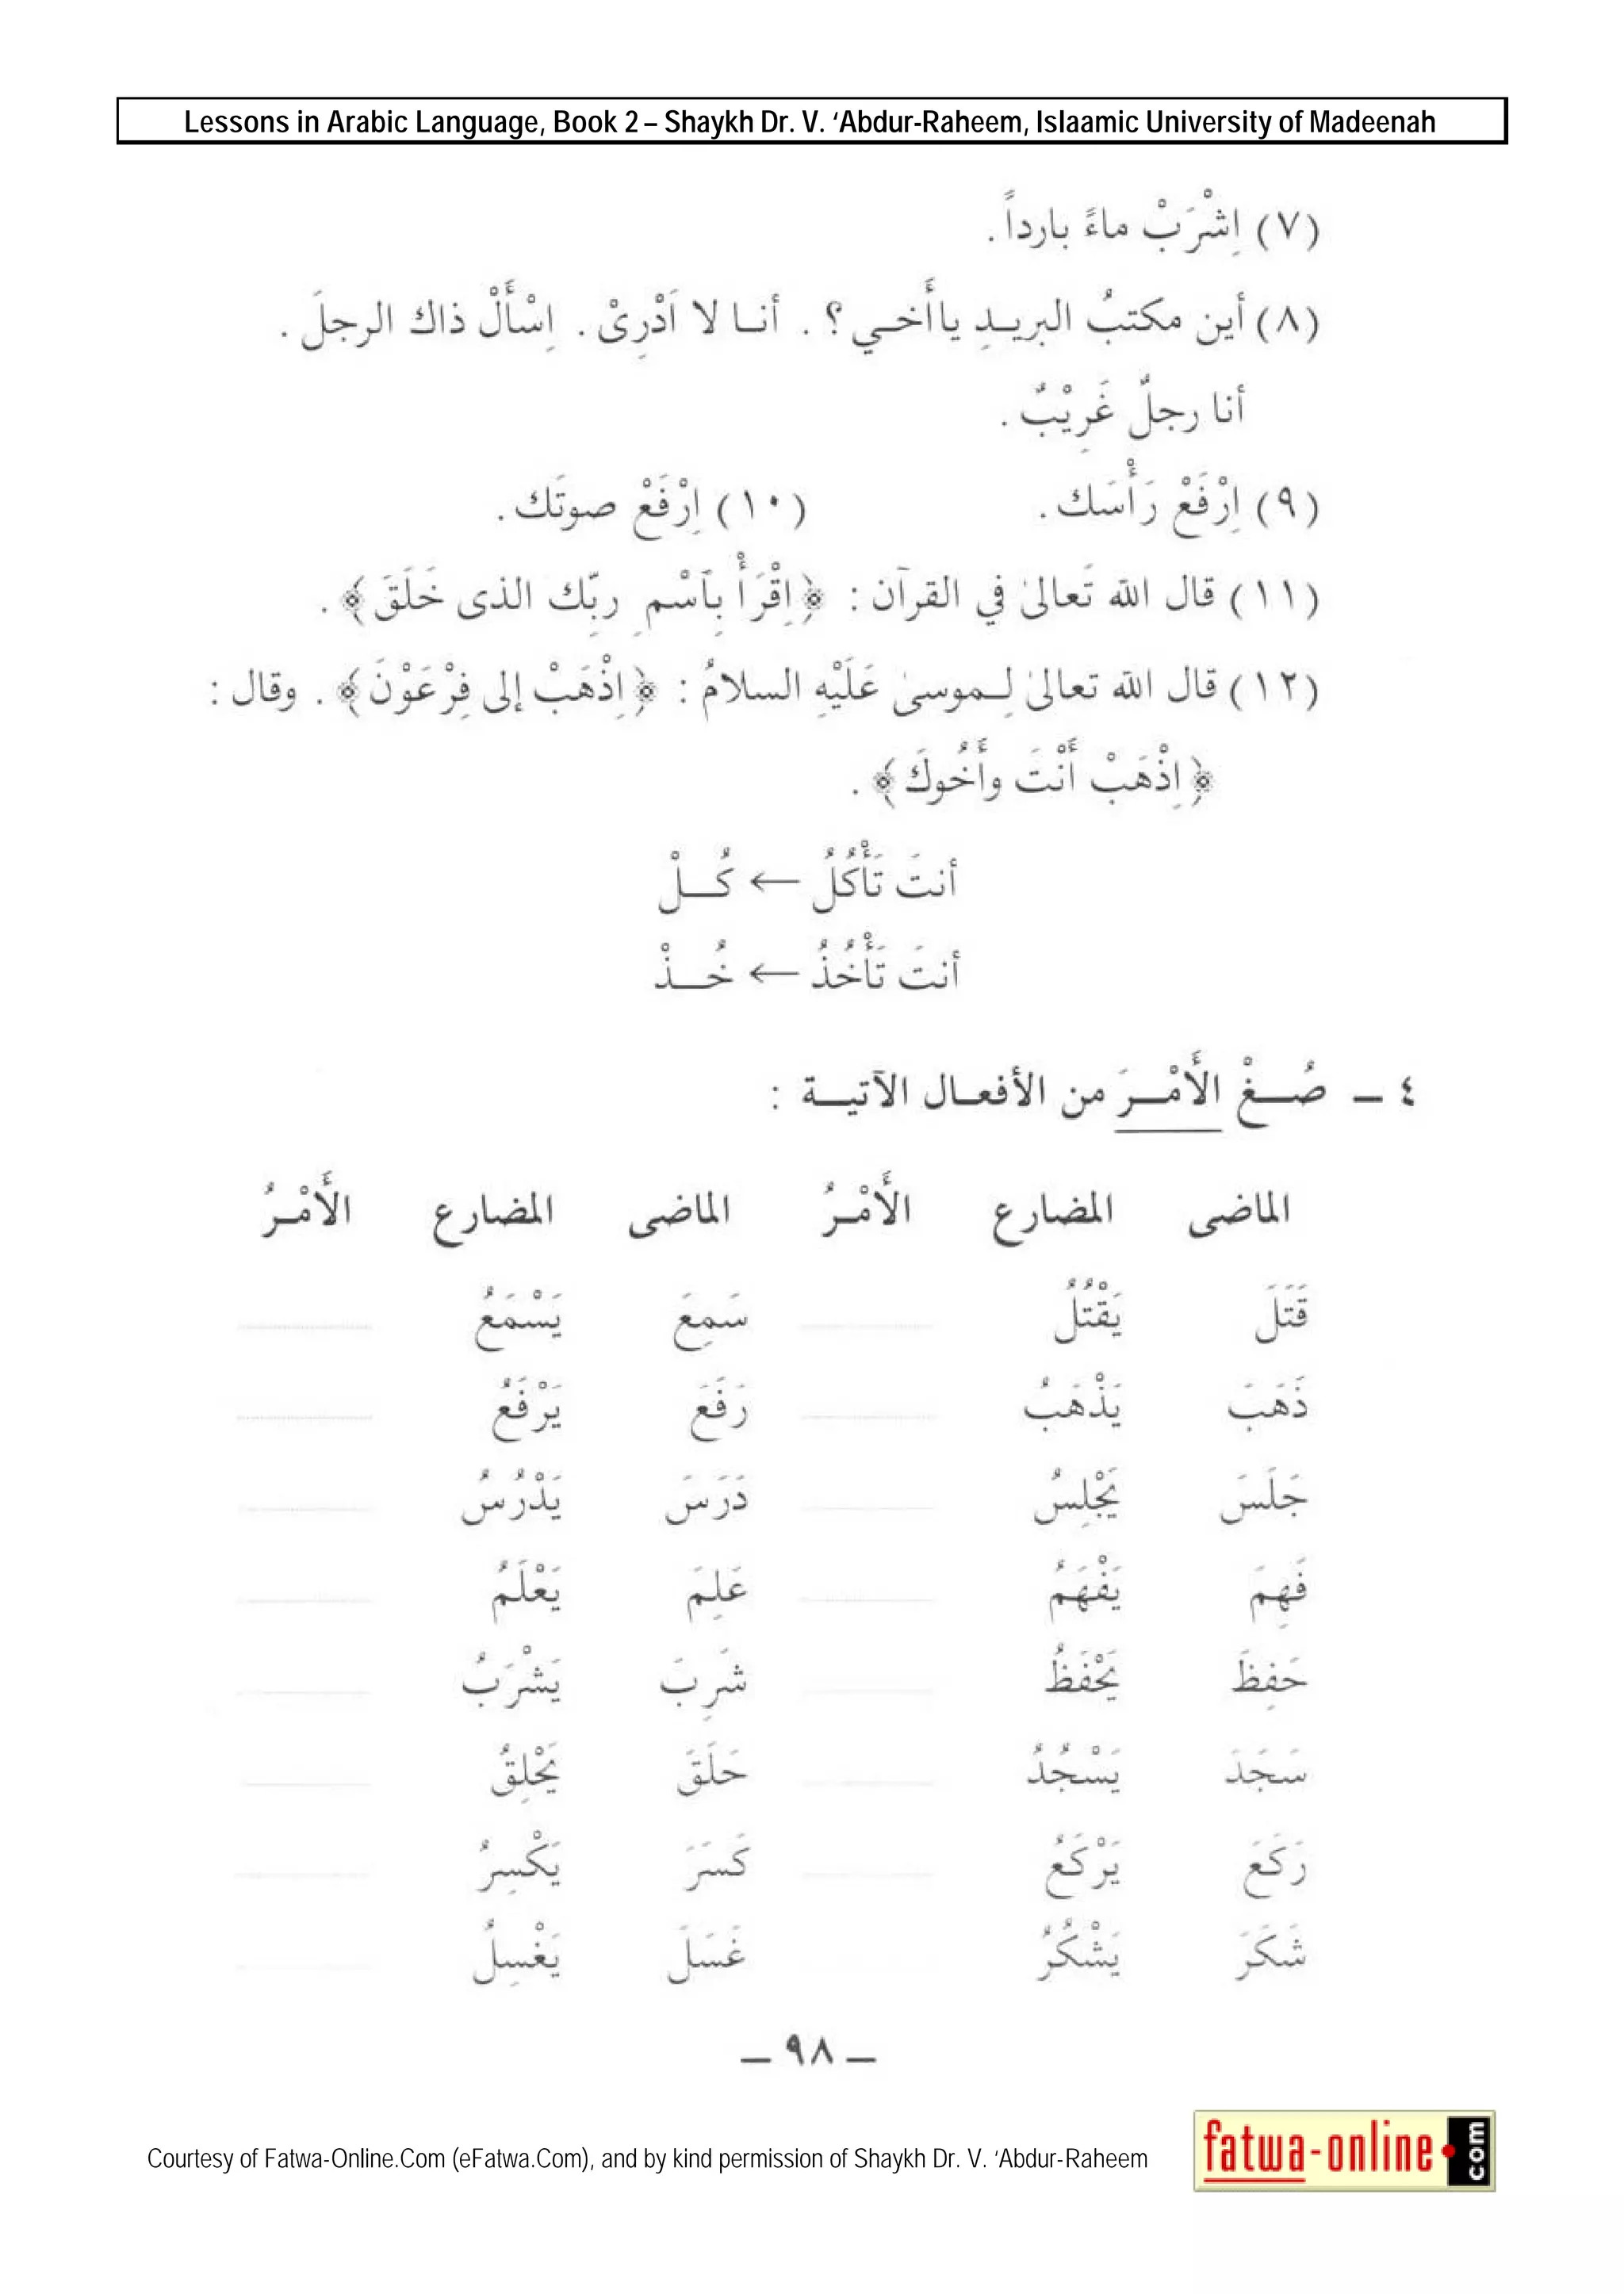 Lessons in Arabic Language, Book 2 – Shaykh Dr. V. ‘Abdur-Raheem, Islaamic University of Madeenah
(٧) اِشْرَبْ ماءً بارداً .
(٨) أين مكتبُ البريدِ ياأَخي ؟ . أنا لا اَدْرِىْ . اِسْأَلْ ذاك الرجلَ .
أنا رجلٌ غَرِيْبٌ .
(٩) اِرْفَعْ رَأْسَك . (١٠) اِرْفَعْ صوتَك .
(١١) قال الله تَعالىٰ في القرآن : ﴿اِقْرَأْ بِٱسْمِ ربِّك الذى خَلَقَ﴾ .
(١٢) قال الله تعالىٰ لِموسىٰ عَلَيْهِ السلامُ : ﴿اِذْهَبْ إلى فِرْعَوْنَ﴾ . وقال :
﴿اِذْهَبْ أَنْتَ وأَخُوكَ﴾ .
أنتَ تَأْكُلُ ← كُلْ
أنتَ تَأْخُذُ ← خُذْ
٤ – صُغْ الأَمْرَ من الأفعال الآتية :
الماضى المضارع الأَمْرُ الماضى المضارع الأَمْرُ
قَتَلَ يَقْتُلُ سَمِعَ يَسْمَعُ
ذَهَبَ يَذْهَبُ رَفَعَ يَرْفَعُ
جَلَسَ يَجْلِسُ دَرَسَ يَدْرُسُ
فَهِمَ يَفْهَمُ عَلِمَ يَعْلَمُ
حَفِظَ يَحْفَظُ شَرِبَ يَشْرَبُ
سَجَدَ يَسْجُدُ حَلَقَ يَحْلِقُ
رَكَعَ يَرْكَعُ كَسَرَ يَكْسِرُ
شَكَرَ يَشْكُرُ غَسَلَ يَغْسِلُ
– ٩٨ –
Courtesy of Fatwa-Online.Com (eFatwa.Com), and by kind permission of Shaykh Dr. V. ‘Abdur-Raheem
fatwa-online.com